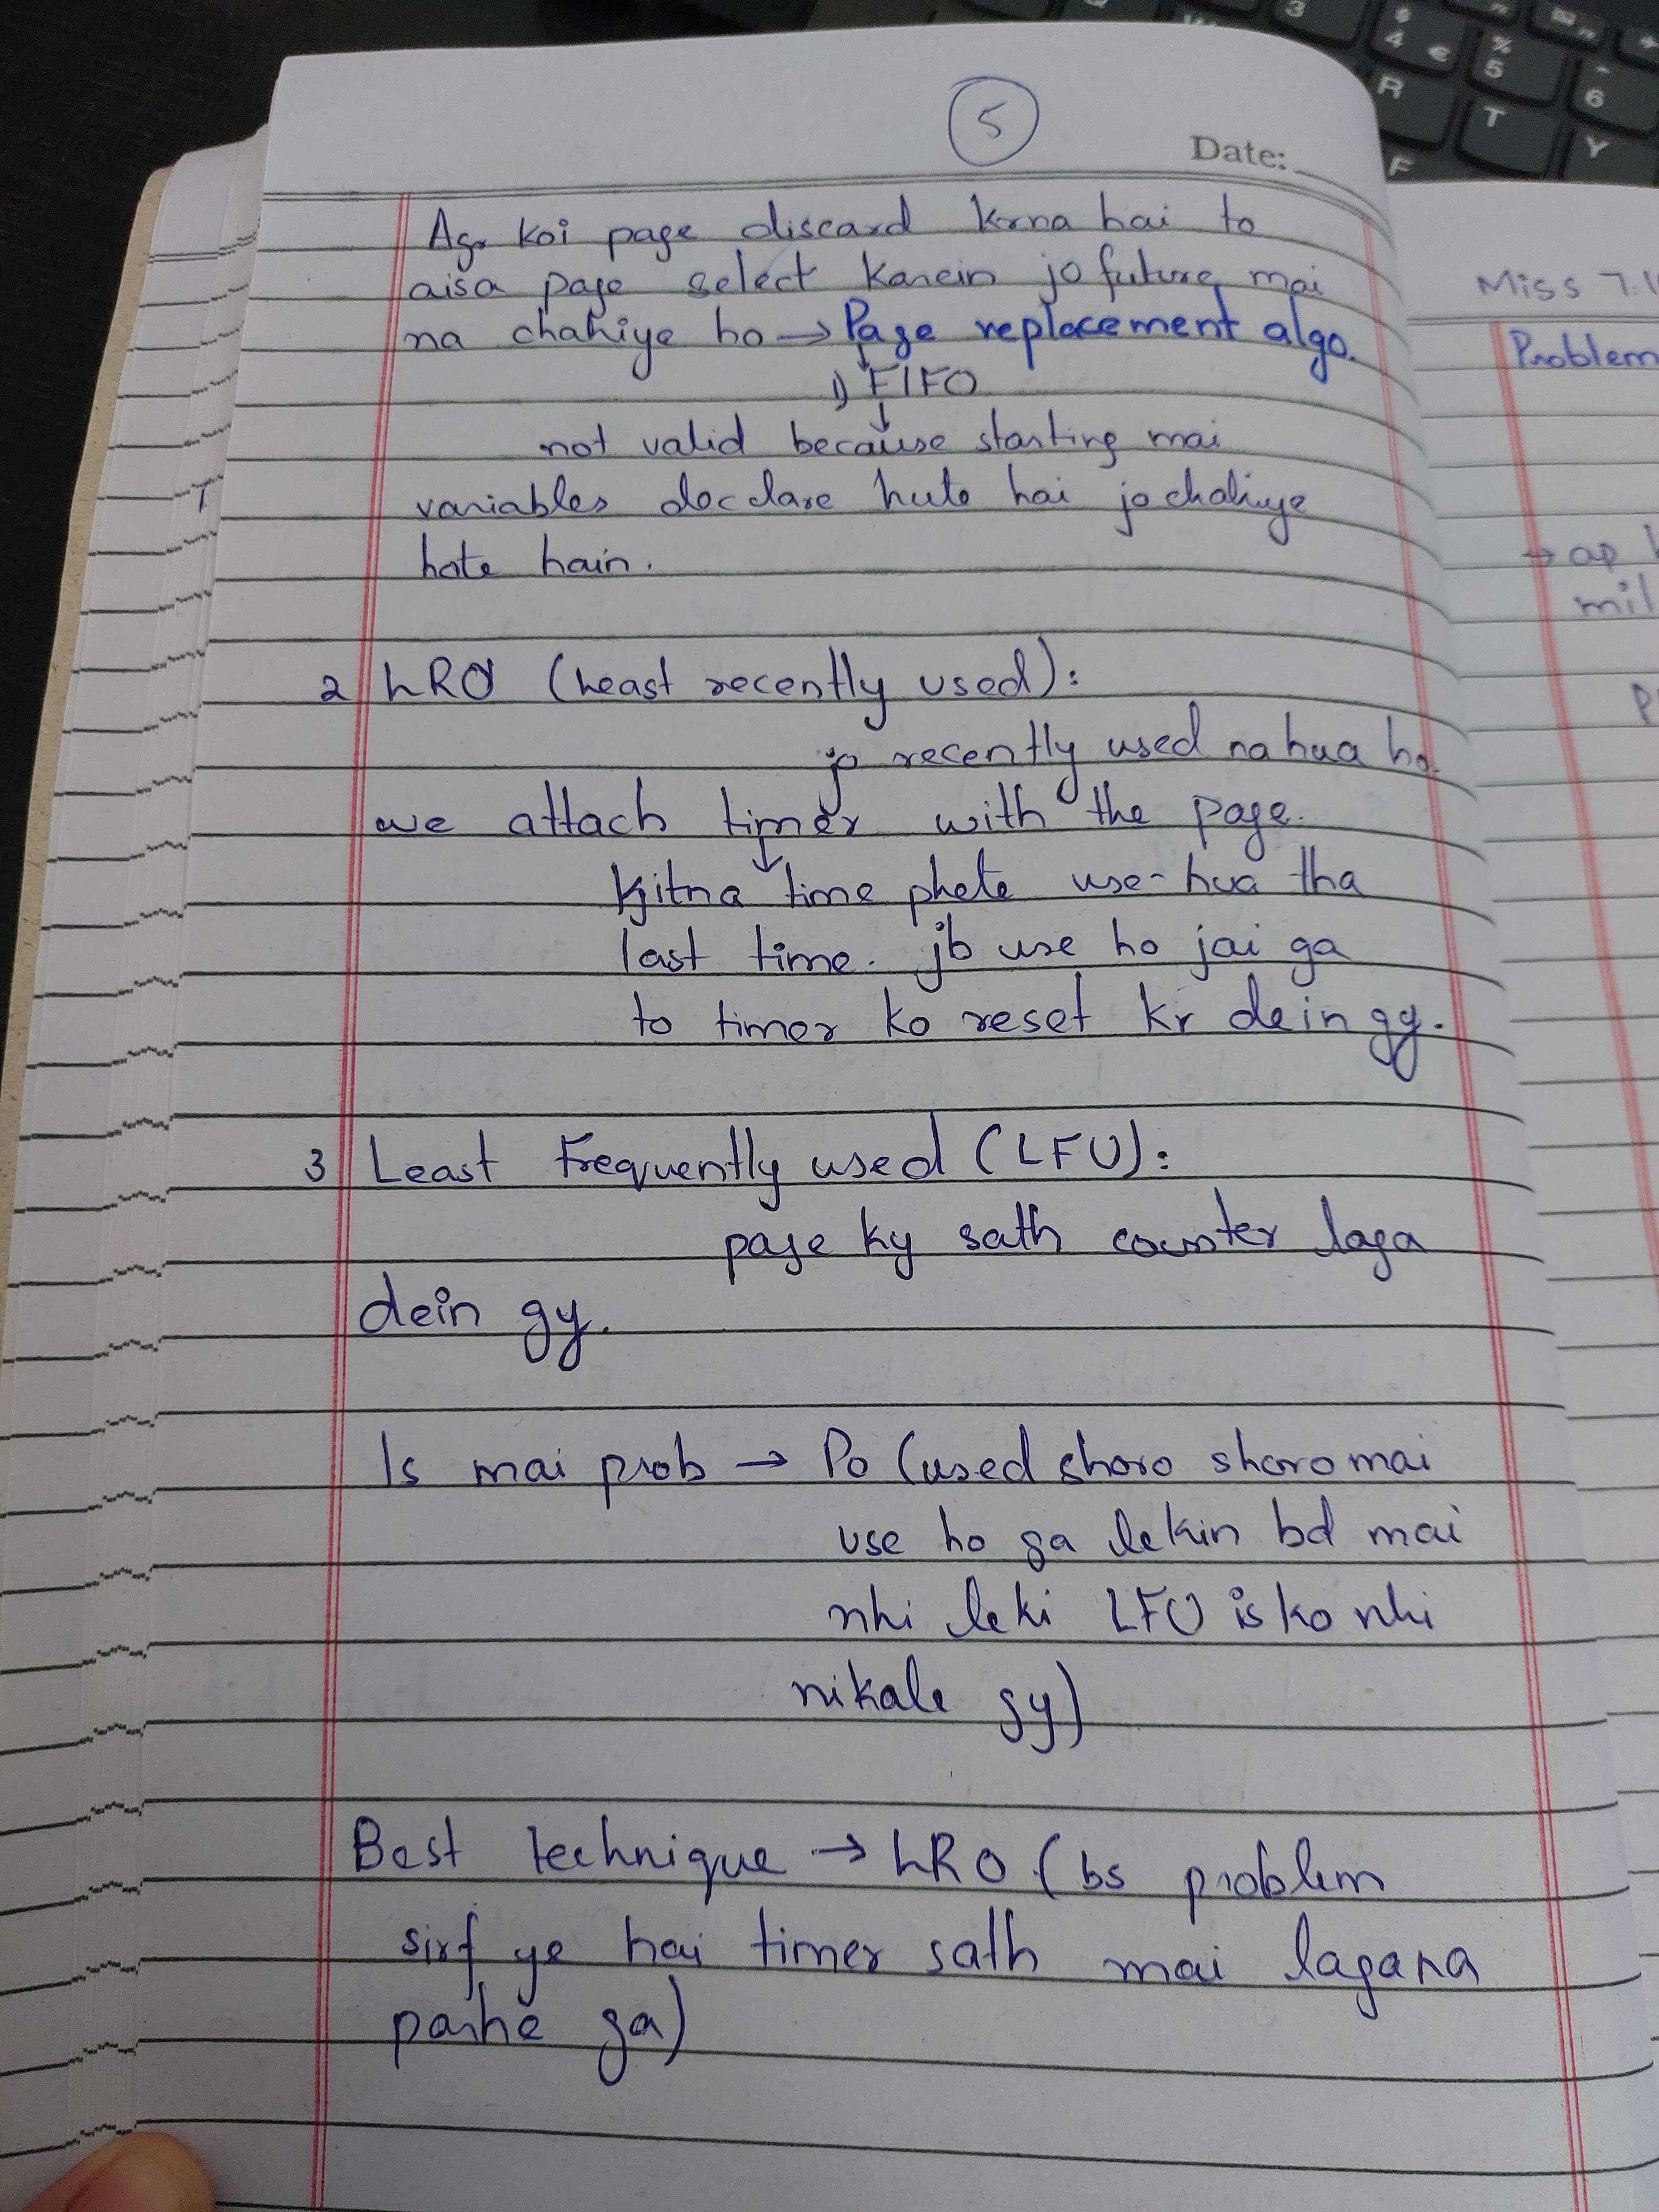 5
Date:
Agr koi page discard krna hai to
aisa page select karein jo future mai
na chahiye ho → Page replacement algo.
1) FIFO
not valid because starting mai
variables declare hute hai jo chahiye
hote hain.
2 LRU (Least recently used):
jo recently used na hua ho.
we attach timer with the page.
kitna time phele use-hua tha
last time. jb use ho jai ga
to timer ko reset kr dein gy.
3 Least Frequently used (LFU):
page ky sath counter laga
dein gy.
Is mai prob → Po (used shoro shoro mai
use ho ga lekin bd mai
nhi leki LFU is ko nhi
nikale gy)
Best technique → LRU (bs problem
sirf ye hai timer sath mai lagana
parhe ga)
Miss 7.1
Problem
→ ap
mil
3
$
4 €
%
5
6
R
T
Y
F